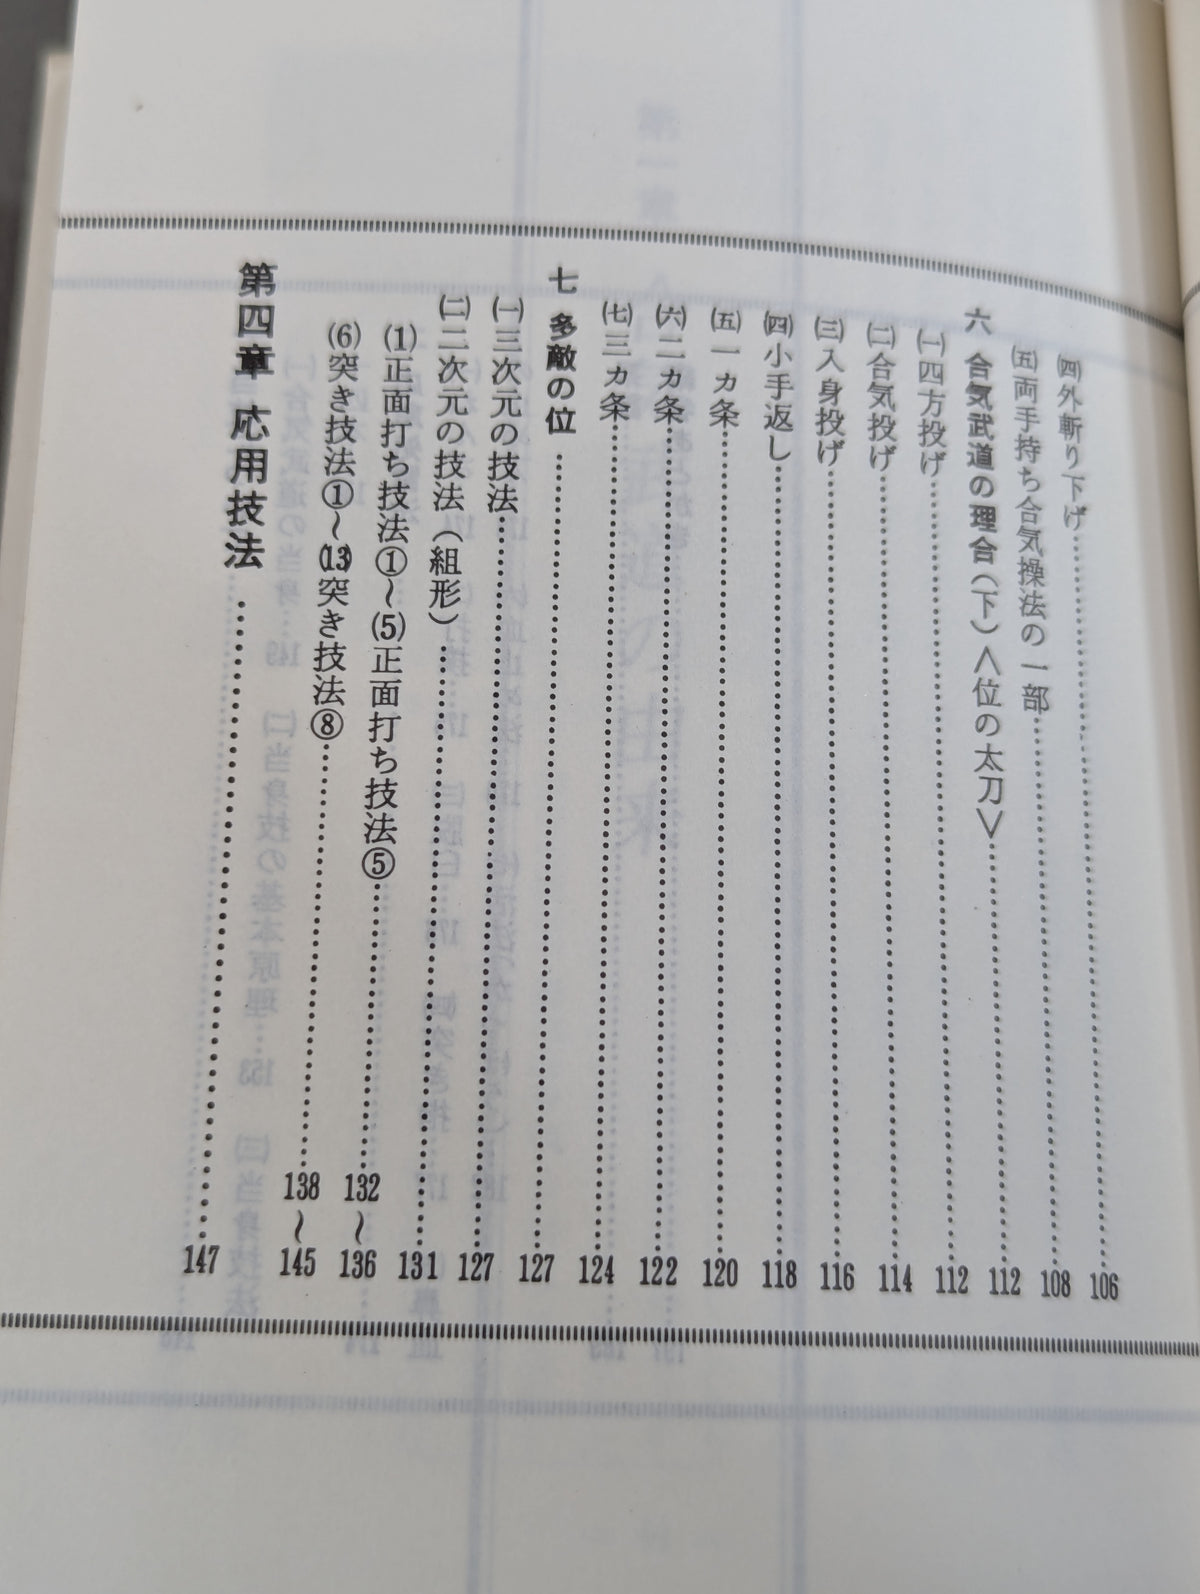 ㈣外斬り下げ……106
㈤両手持ち合気操法の一部……108
六 合気武道の理合（下）＜位の太刀＞……112
㈠四方投げ……112
㈡合気投げ……114
㈢入身投げ……116
㈣小手返し……118
㈤一カ条……120
㈥二カ条……122
㈦三カ条……124
七 多敵の位……127
㈠三次元の技法……127
㈡二次元の技法（組形）……131
⑴正面打ち技法①〜⑸正面打ち技法⑤……132〜136
⑹突き技法①〜⒀突き技法⑧……138〜145
第四章 応用技法……147